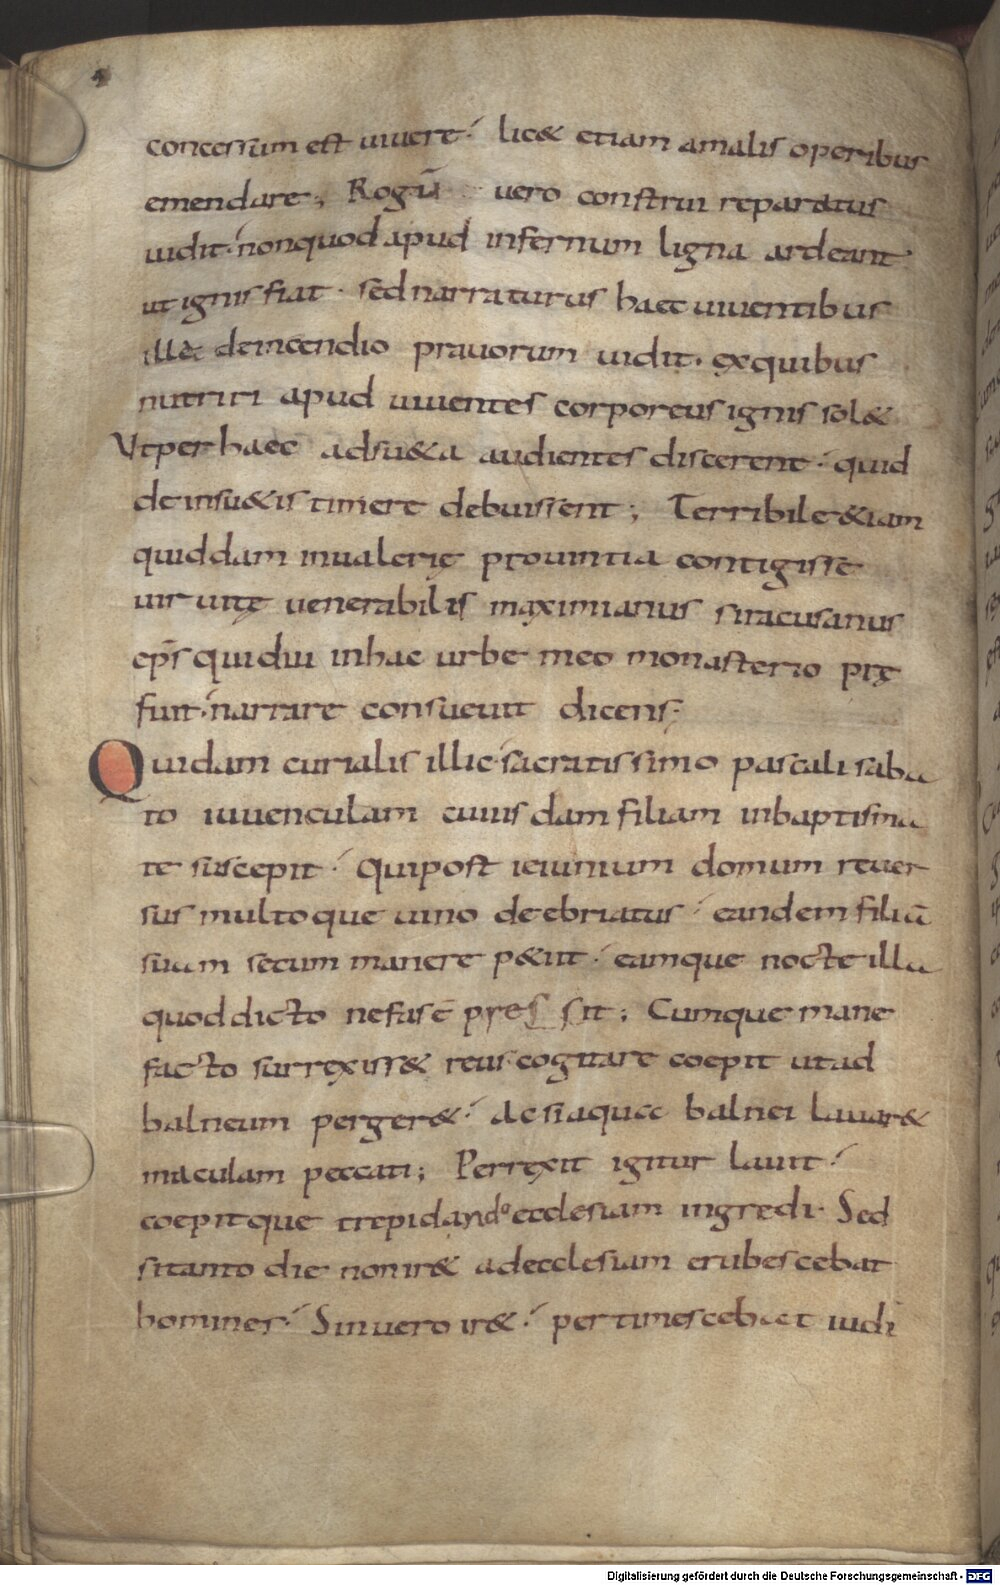 concessum est uiuere. lic& etiam amalis operibus
emendare; Rogū uero construi reparatus
uidit. nonquod apud infernum ligna ardeant
ut ignis fiat. sed narraturus haec uiuentibus
illa deincendio prauorum uidit. exquibus
nutriri apud uiuentes corporeus ignis sol&
Vt per haec adsu&a audientes discerent. quid
de insu&is timere debuissent; Terribile &iam
quiddam inualerię prouintia contigisse
uir uitę uenerabilis maximianus siracusanus
ep̄s qui diu inhac urbe meo monasterio prę
fuit. narrare consueuit dicens;
Quidam curialis illic sacratissimo pascali saba
to iuuenculam cuius dam filiam inbaptisma
te suscepit. Qui post ieiunium domum reuer
sus multoque uino deebriatus. eandem filiā
suam secum manere p&iit. eamque nocte illa
quod dicto nefas ē pres sit; Cumque mane
facto surrexiss& reus cogitare coepit ut ad
balneum perger&. ac si aquae balnei lauar&
maculam peccati; Perrexit igitur lauit.
coepitque trepidando ecclesiam ingredi. Sed
si tanto die non ir& adecclesiam erubescebat
homines. Sin uero ir&. pertimescebat iudi
Digitalisierung gefördert durch die Deutsche Forschungsgemeinschaft - DFG